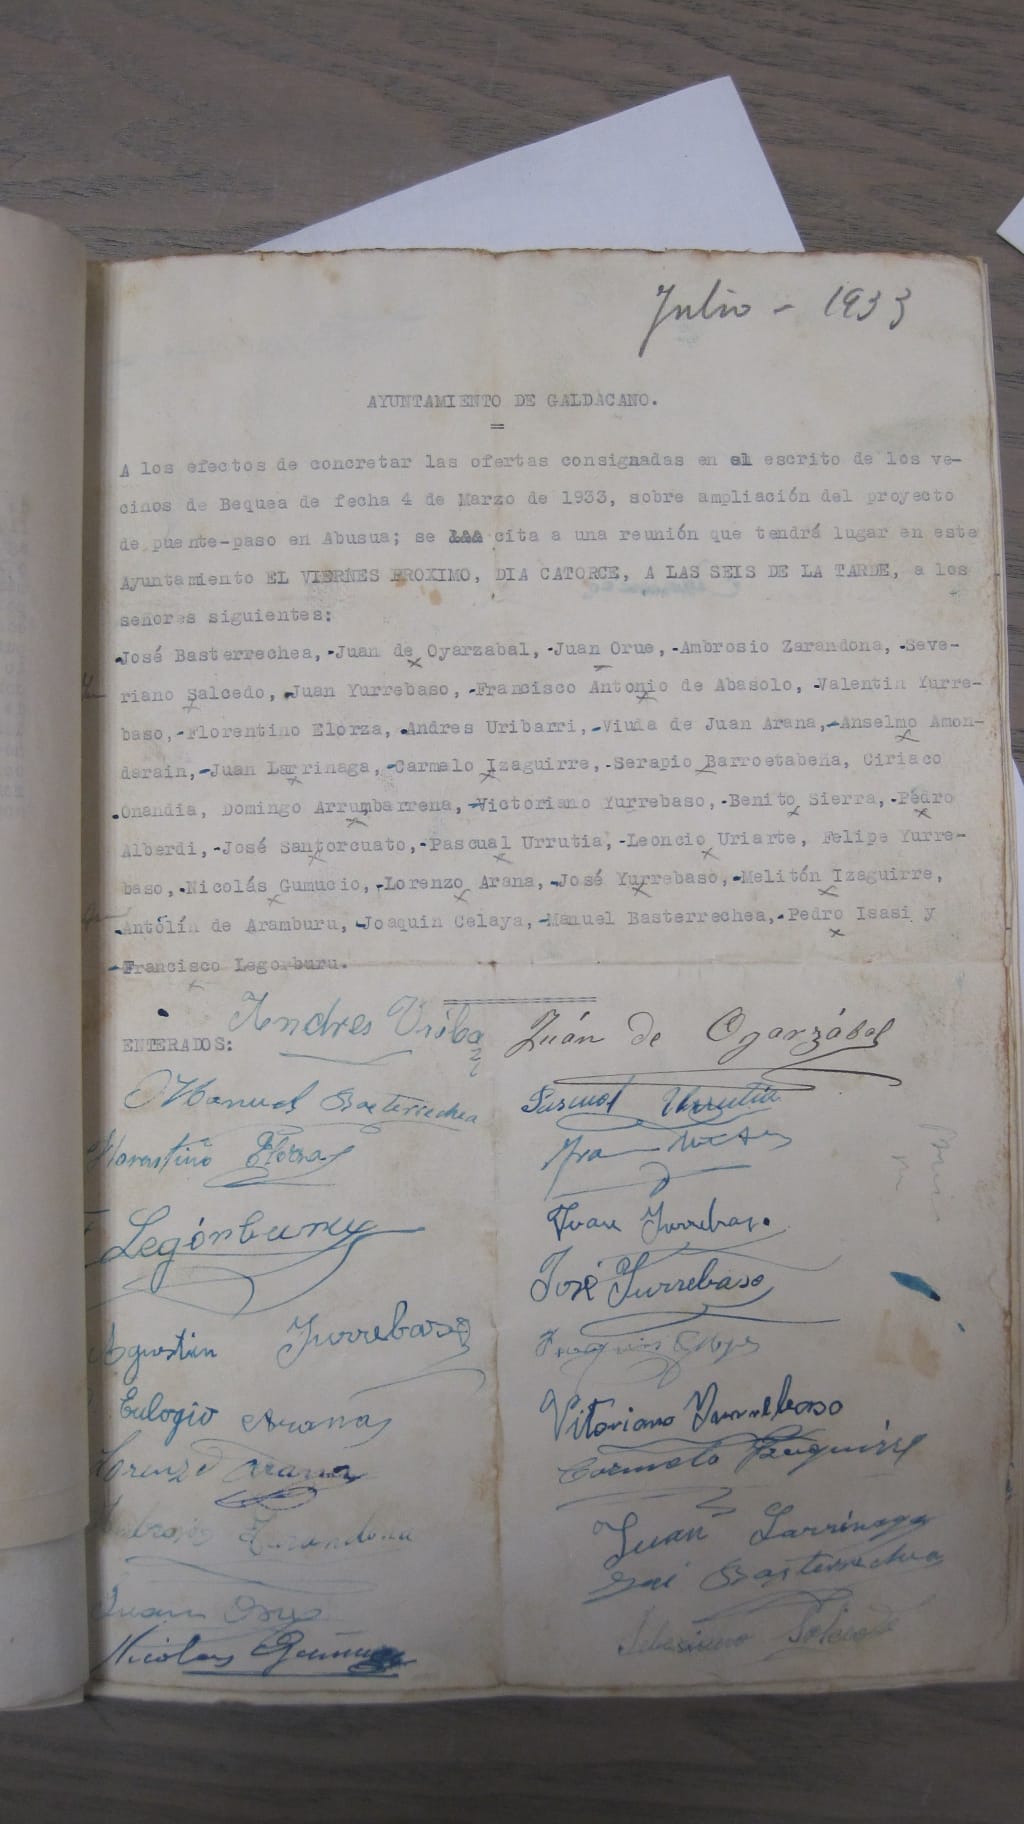 Julio - 1933
AYUNTAMIENTO DE GALDACANO.
=
A los efectos de concretar las ofertas consignadas en el escrito de los ve-
cinos de Bequea de fecha 4 de Marzo de 1933, sobre ampliación del proyecto
de puente-paso en Abusua; se cita a una reunión que tendrá lugar en este
Ayuntamiento EL VIERNES PROXIMO, DIA CATORCE, A LAS SEIS DE LA TARDE, a los
señores siguientes:
José Basterrechea,-Juan de Oyarzabal,-Juan Orue,-Ambrosio Zarandona,-Seve-
riano Salcedo,-Juan Yurrebaso,-Francisco Antonio de Abasolo,-Valentin Yurre-
baso,-Florentino Elorza,-Andres Uribarri,-Viuda de Juan Arana,-Anselmo Amon-
darain,-Juan Larrinaga,-Carmelo Izaguirre,-Serapio Barroetabeña, Ciriaco
Onandia, Domingo Arrumbarrena,-Victoriano Yurrebaso,-Benito Sierra,-Pedro
Alberdi,-José Santorcuato,-Pascual Urrutia,-Leoncio Uriarte, Felipe Yurre-
baso,-Nicolás Gumucio,-Lorenzo Arana,-José Yurrebaso,-Melitón Izaguirre,
Antolín de Aramburu,-Joaquin Celaya,-Manuel Basterrechea,-Pedro Isasi y
-Francisco Legorburu.
Andres Uriba
Juán de Oyarzábal
ENTERADOS:
Manuel Basterrechea
Pascual Urrutia
Florentino Elorza
Legórburu
Juan Yurrebaso
José Yurrebaso
Agustin Yurrebaso
Eulogio Arana
Vitoriano Yurrebaso
Lorenzo Arana
Carmelo Izaguirre
Ambrosio Zarandona
Juan Larrinaga
José Basterrechea
Juan Orue
Nicolas Gumucio
Salcedo